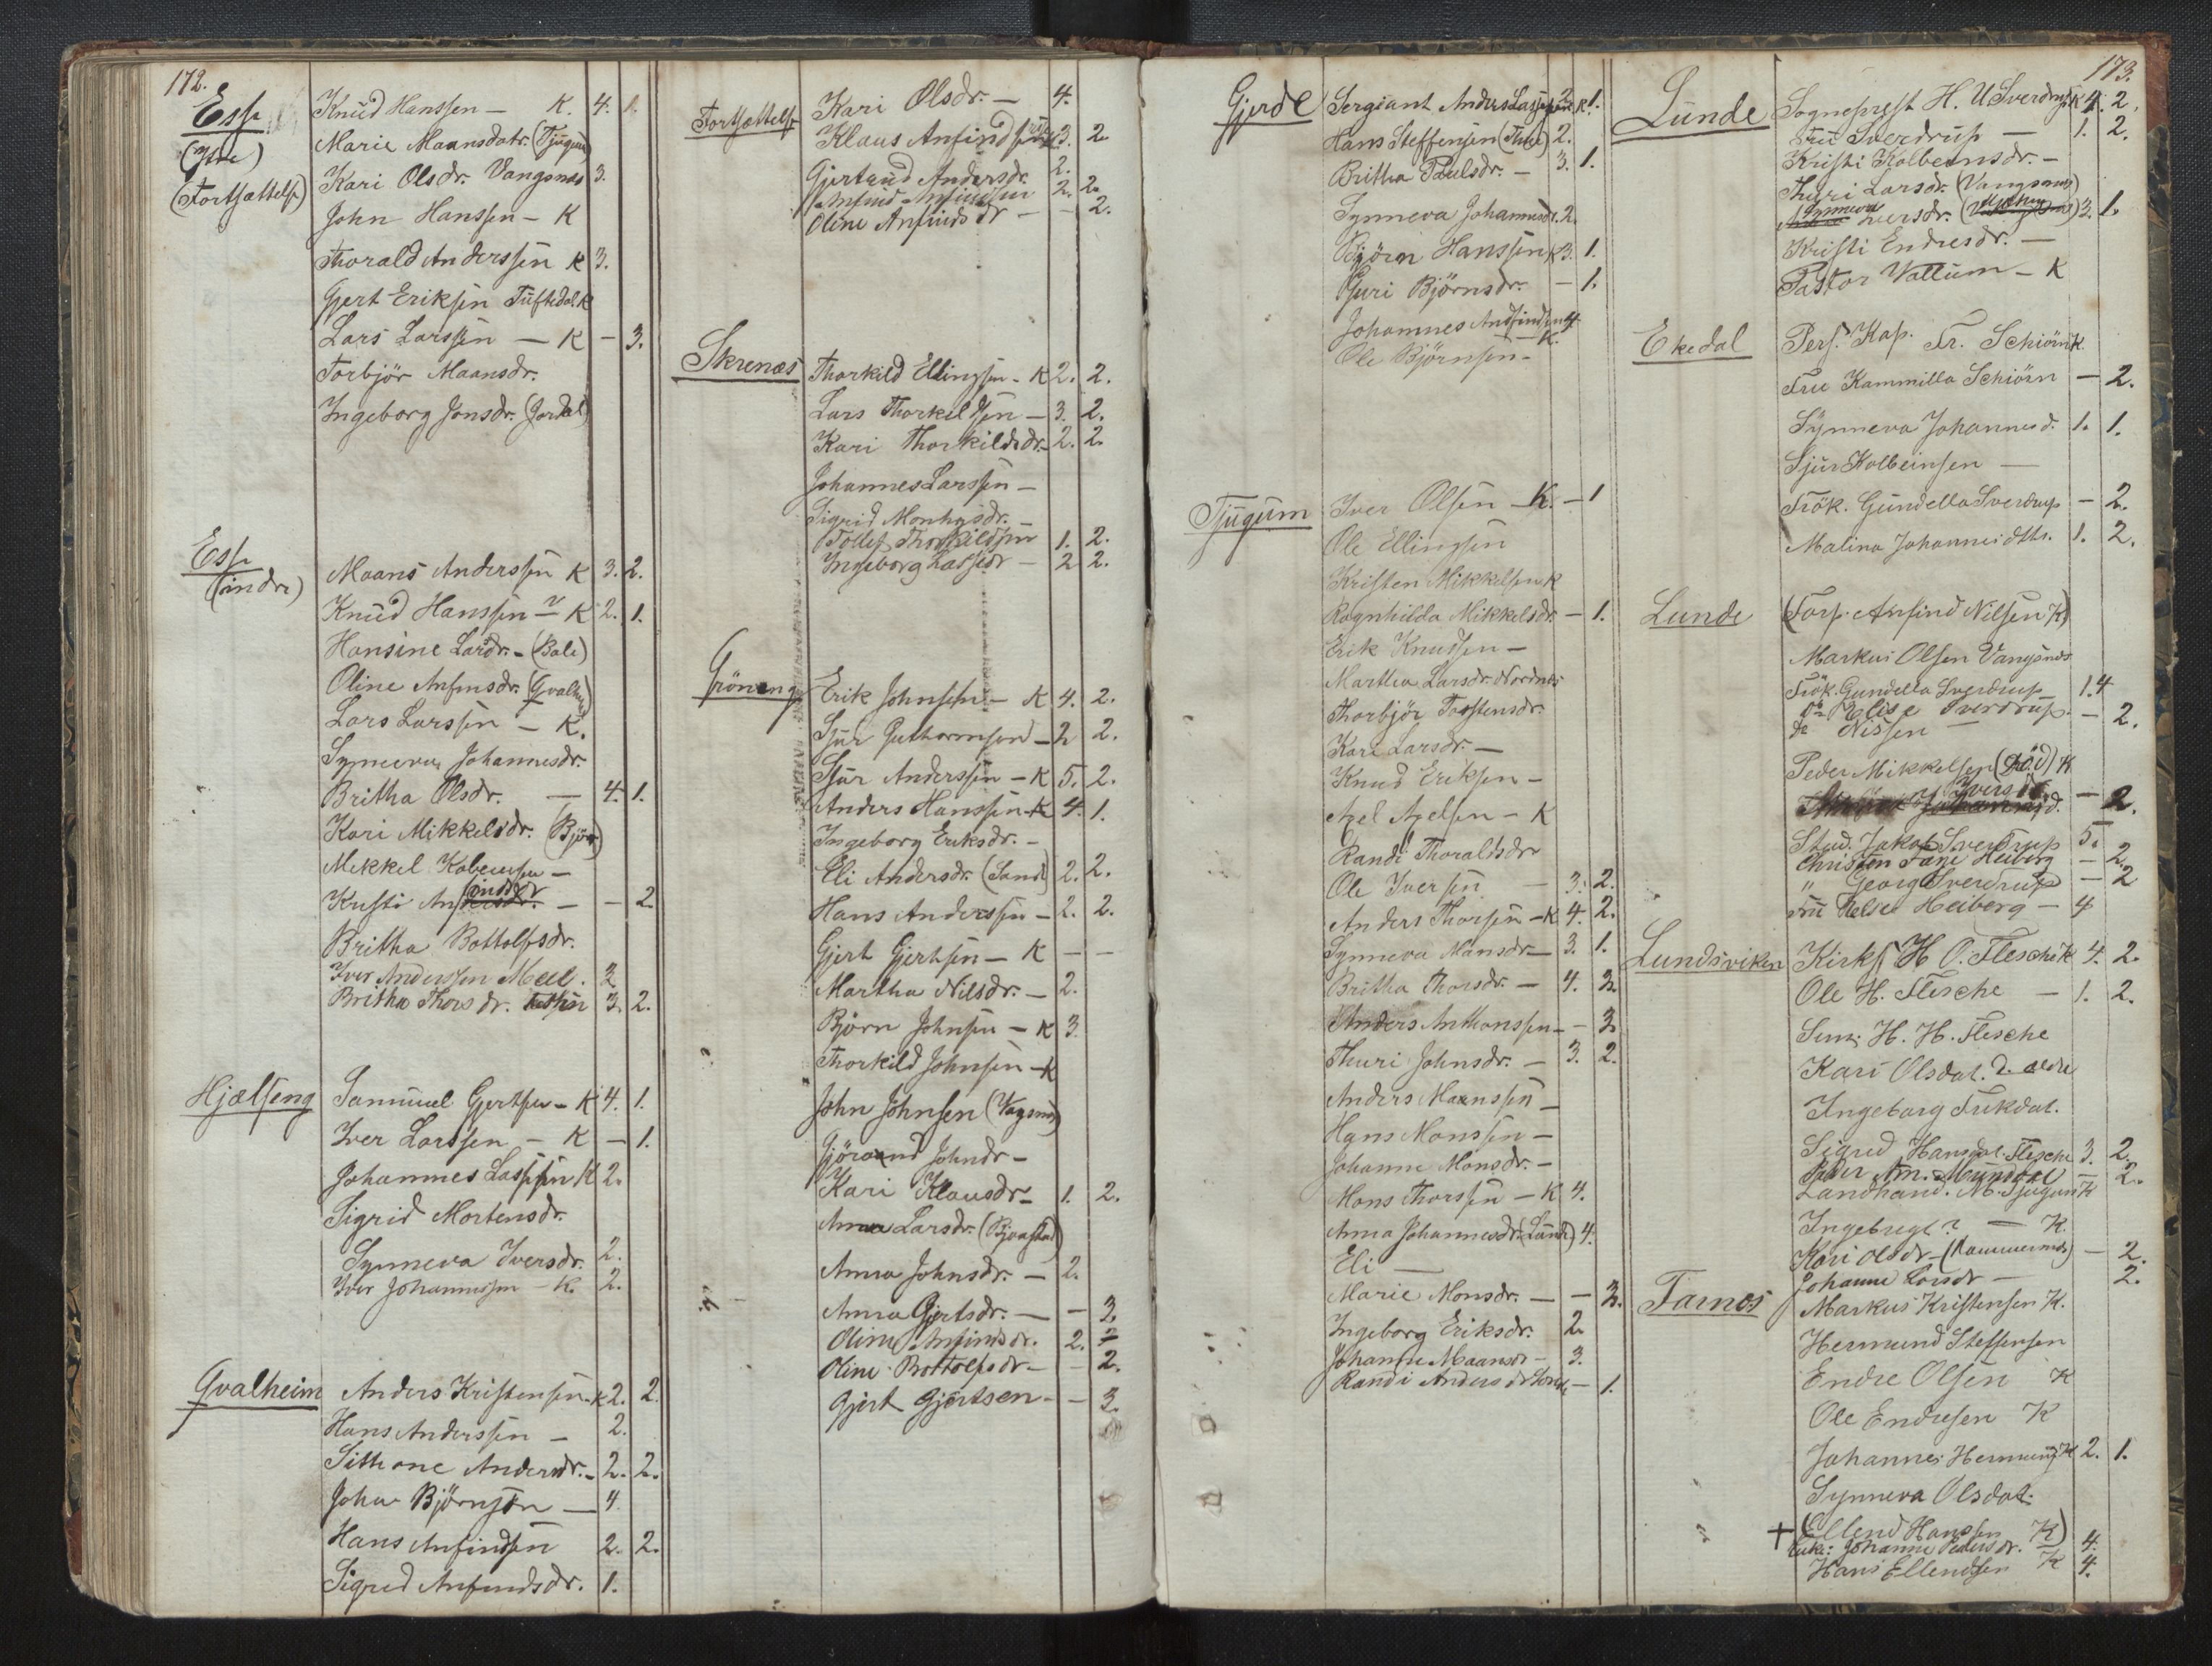 172.
Esse
(Ytre)
(Fortsættelse)
Knud Hanssen — K. 4. 1.
Marie Maansdatr. (Tjugum)
Kari Olsdr. Vangsnæs 3.
John Hanssen — K
Thorald Anderssen K 3.
Gjert Eriksen Tuftedal. K
Lars Larssen — K — 3.
Torbjör Maansdr.
Ingeborg Jonsdr. (Jordal)
Esse
(indre)
Maans Anderssen K 3. 2.
Knud Hanssen — K 2. 1.
Hansine Larsdr. — (Bale)
Oline Anfinsdr. (Qvalheim)
Lars Larssen — K.
Synneva Johannesdr.
Britha Olsdr. — 4. 1.
Kari Mikkelsdr. (Bjór)
Mikkel Kobeinsen —
Kristi Anfindsdr — — 2
Britha Bottolfsdr.
Iver Anderssen Mell. 3
Britha Thorsdr. 3. 2.
Hjælseng
Samuel Gjertsen — K 4. 1.
Iver Larssen — K — 1.
Johannes Lassesen K 2.
Sigrid Mortensdr.
Synneva Iversdr. 2.
Iver Johannessen — K. 2.
Qvalheim
Anders Kristensen — K 2. 2.
Hans Anderssen — 2.
Sithone Andersdr. — 2. 2.
Johan Björnsen — 4.
Hans Anfindsen 2. 2.
Sigrid Anfindsdr. 1.
Fortsættelse
Kari Olsdr. — 4.
Klaus Anfindsen K 3. 2.
Gjertrud Andersdr. 2.
Anfind Anfindsen 2. 2.
Oline Anfindsdr — — 2.
Skrenæs
Thorkild Ellingsen — K 2. 2.
Lars Thorkildsen — 3. 2.
Kari Thorkildsdr. — 2. 2.
Johannes Larssen —
Sigrid Monhysdr. —
Tollef Thorkildsen 1. 2.
Ingeborg Lassedr — 2 2.
Gröneng
Erik Johnsen — K 4. 2.
Sjur Guthormsen — 2 2.
Sjur Anderssen — K 5. 2.
Anders Hanssen — K 4. 1.
Ingeborg Eriksdr. —
Eli Andersdr. (Sand) 2. 2.
Hans Anderssen — 2. 2.
Gjert Gjertsen — K — —
Martha Nilsdr. — 2.
Björn Johnsen — K 3.
Thorkild Johnsen — K
John Johnsen (Vagsnæs)
Gjöraand Johndr —
Kari Klausdr — 1. 2.
Anna Larsdr. (Bjøastad)
Anna Johnsdr. — 2.
Anna Gjertsdr. — — 3.
Oline Anfindsdr. 2. 2
Oline Bottolfsdr — — 2.
Gjert Gjertsen — — 3.
Gjerde
Sergiant Anders Lassesen 2. K 1.
Hans Steffensen (Thue) 2.
Britha Paulsdr. — 3. 1.
Synneva Johannesdr. 2.
Björn Hanssen K 3. 1.
Guri Björnsdr. — 1.
Johannes Andfindsen 4
Ole Björnsen — K.
Tjugum
Iver Olsen — K. — 1
Ole Ellingsen
Kristen Mikkelsen K
Ragnhilda Mikkelsdr. — 1.
Erik Knudsen —
Martha Larsdr. Nordnæs
Thorbjör Torstensdr.
Kari Larsdr. —
Knud Eriksen —
Axel Axelsen — K
Randi Thoraldsdr
Ole Iversen — 3. 2.
Anders Thorsen — K 4. 2.
Synneva Mansdr — 3. 1.
Britha Thorsdr. — 4. 2.
Anders Anthonssen — — 3
Thuri Johnsdr. — 3. 2.
Anders Maanssen —
Hans Monssen —
Johanne Monsdr. —
Mons Thorssen — K 4.
Anna Johannesdr. (Lunde) 4.
Eli —
Marie Monsdr. — — 3.
Ingeborg Eriksdr. 2.
Johanne Maansdr — 3.
Randi Andersdr — 1.
173.
Lunde
Sogneprest H. U Sverdrup K 4. 2.
Fru Sverdrup — 1. 2.
Kristi Kolbensdr. —
Thuri Larsdr. (Vangsnæs)
Synneva Iversdr. 3. 1.
Kristi Endresdr. —
Pastor Vattum — K
Ekedal
Pers. Kap. Fr. Schiörn K.
Frue Kammilla Schiörn — 2.
Synneva Johannesd. 1. 1.
Sjur Kolbeinsen —
Frök. Gundella Sverdrup — 2.
Malina Johannesdtr. 1. 2.
Lunde
(Forp. Anfind Nilsen K)
Markus Olsen Vangsnæs
Frök. Gundella Sverdrup — 1. 4
do Elise Sverdrup. — 2.
do Nissen —
Peder Mikkelsen (Död) K
Iversdr — 2.
Stud. Jakob Sverdrup 5.
Christen Heiberg — 2.
" Georg Sverdrup — 2
Fru Heiberg — 4
Lundsviken
Kirks. H. O. Flesche K 4. 2.
Ole H. Flesche — 1. 2.
Sem: H. H. Flesche
Kari Olsdat. d. ældre
Ingeborg Frikdat.
Sigrid Hansdat. Flesche 3. 2.
Peder Am. Mundal — 2.
Landhand. M. Tjugum K
Ingebregt? — K.
Kari Olsdr — — 2.
Johanne Larsdr — 2.
Farnes
Markus Kristensen K.
Hermund Steffensen
Endre Olsen K
Ole Endresen K
Johannes Hermunds. K 2. 1.
Synneva Olsdat.
+ (Ellend Hanssen K)
Enke: Johanne Pedersdr. 4.
Hans Ellendsen K 4.